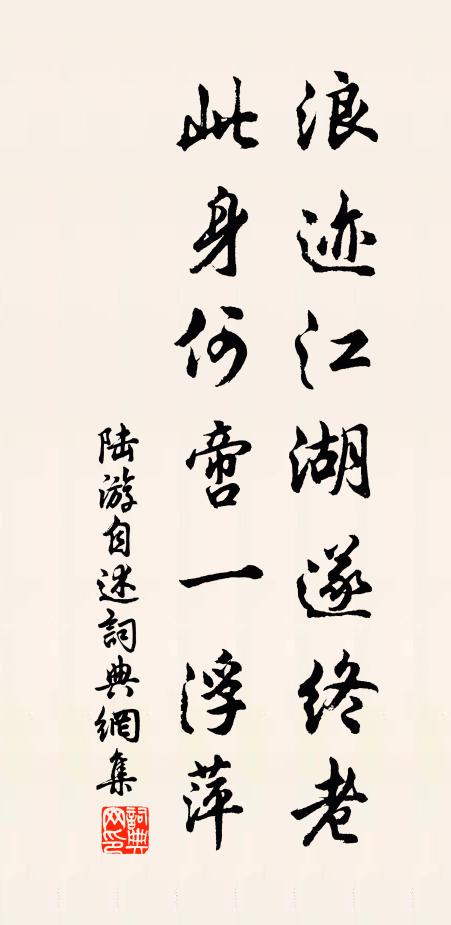 浪迹江湖遂终老
此身何啻一浮萍
陆游自述詞典網集
詞典
网印